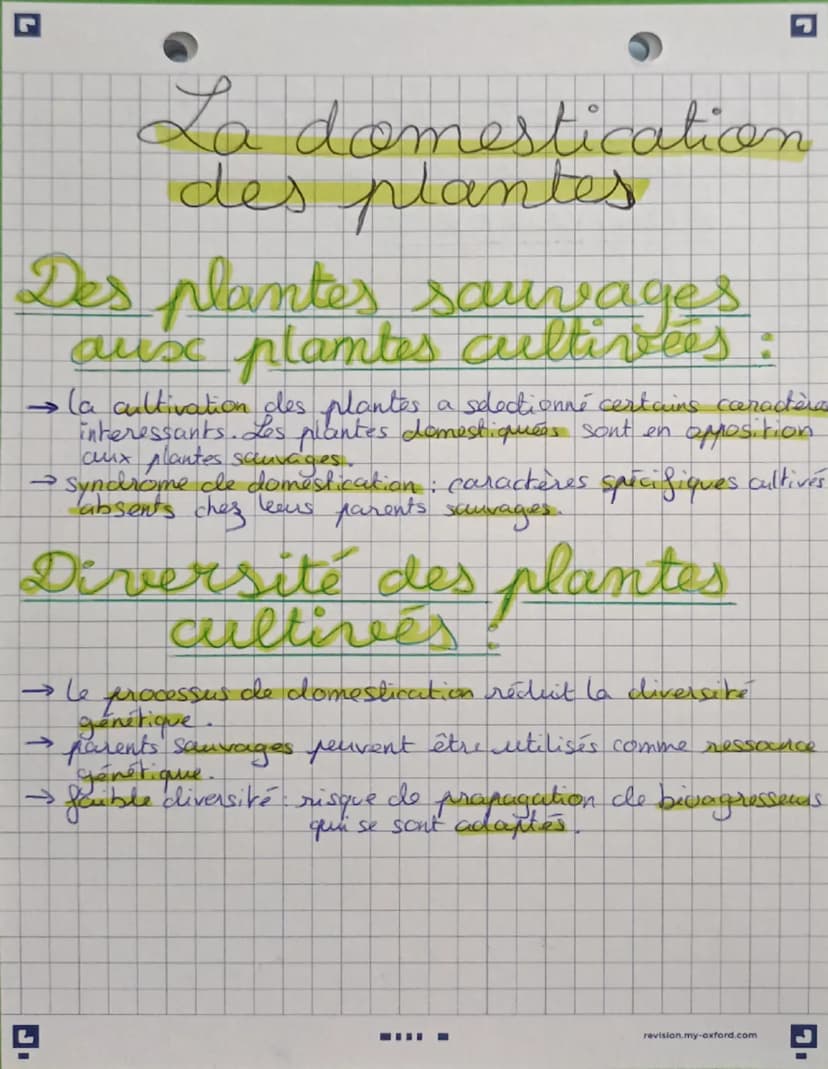 La domestication
des plantes
Des plantes sauvages
aux plantes cultivées :
→ la cultivation des plantes a sélectionné certains caractères
interessants. Les plantes domestiquées sont en opposition
aux plantes sauvages.
→ syndrome de domestication : caractères spécifiques cultivés
absents chez leurs parents sauvages.
Diversité des plantes
cultivées :
→ le processus de domestication réduit la diversité
génétique.
→ parents sauvages peuvent être utilisés comme ressource
génétique.
→ faible diversité : risque de propagation de bioagresseurs
qui se sont adaptés.
revision.my-oxford.com